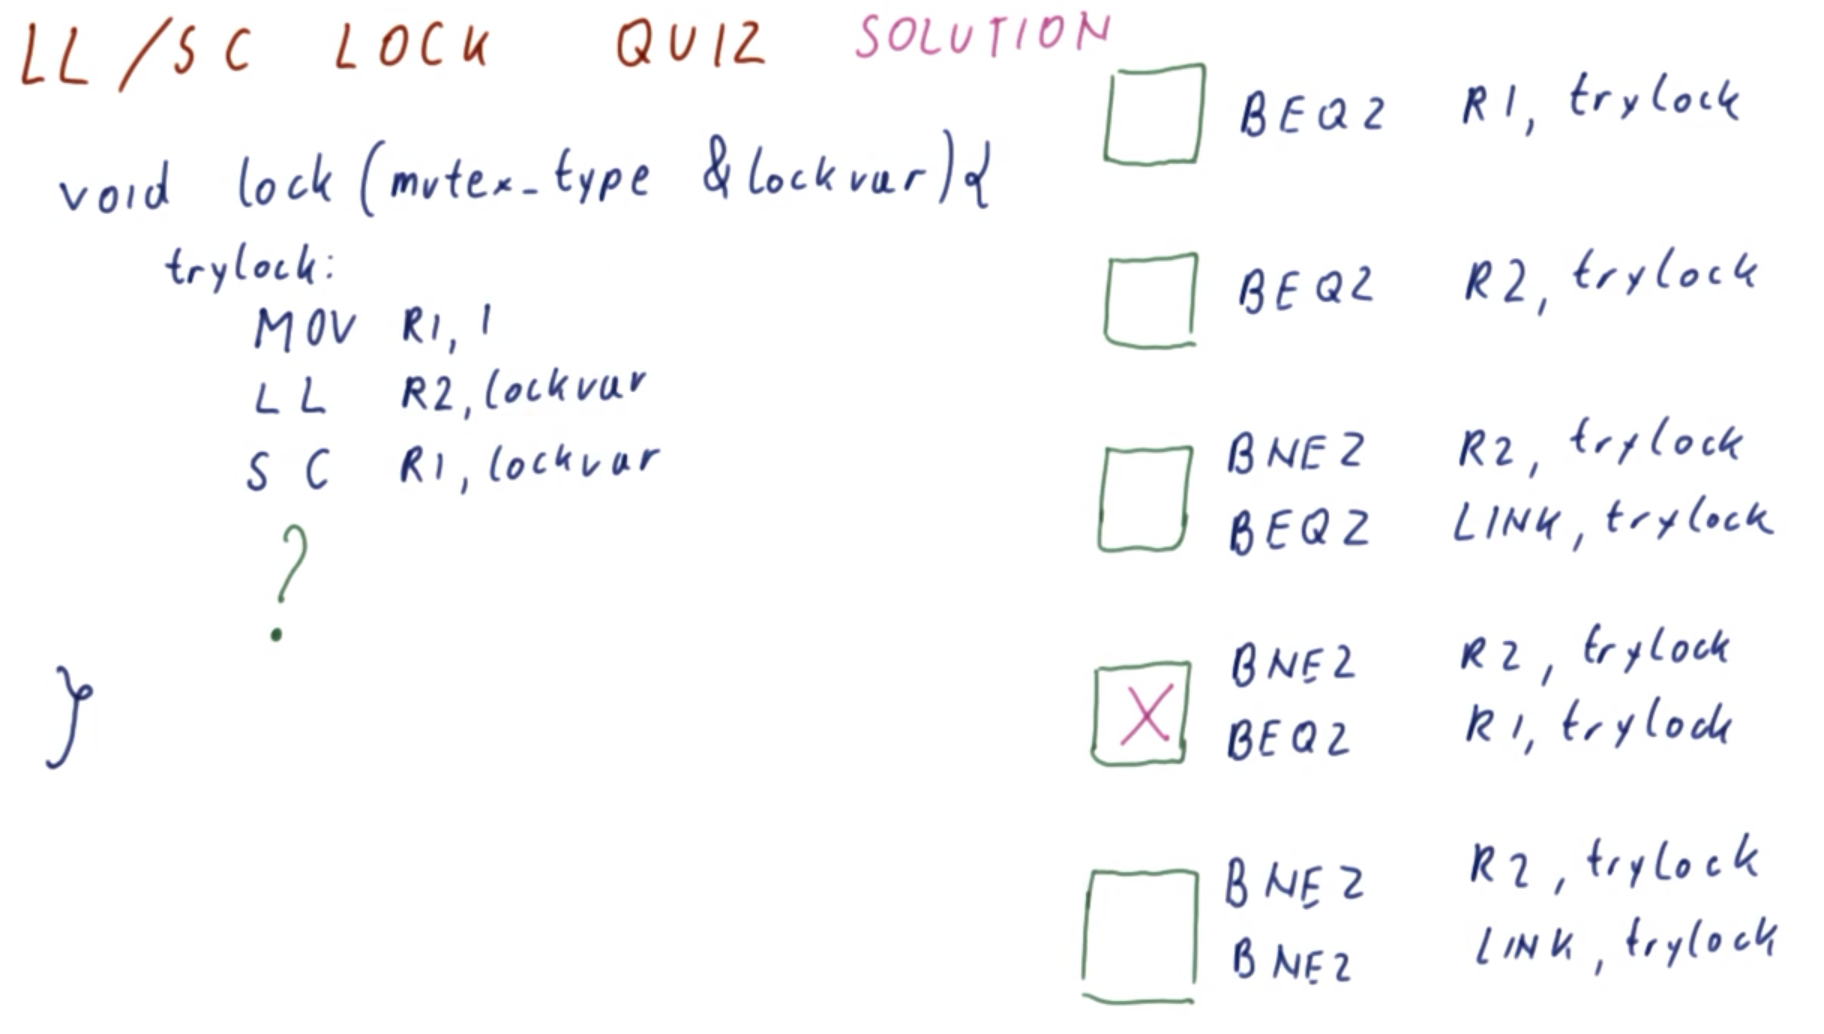 LL/SC LOCK QUIZ SOLUTION
void lock (mutex_type &lockvar) {
trylock:
MOV R1, 1
LL R2, lockvar
SC R1, lockvar
?
}
BEQZ R1, trylock
BEQZ R2, trylock
BNEZ R2, trylock
BEQZ LINK, trylock
X
BNEZ R2, trylock
BEQZ R1, trylock
BNEZ R2, trylock
BNEZ LINK, trylock